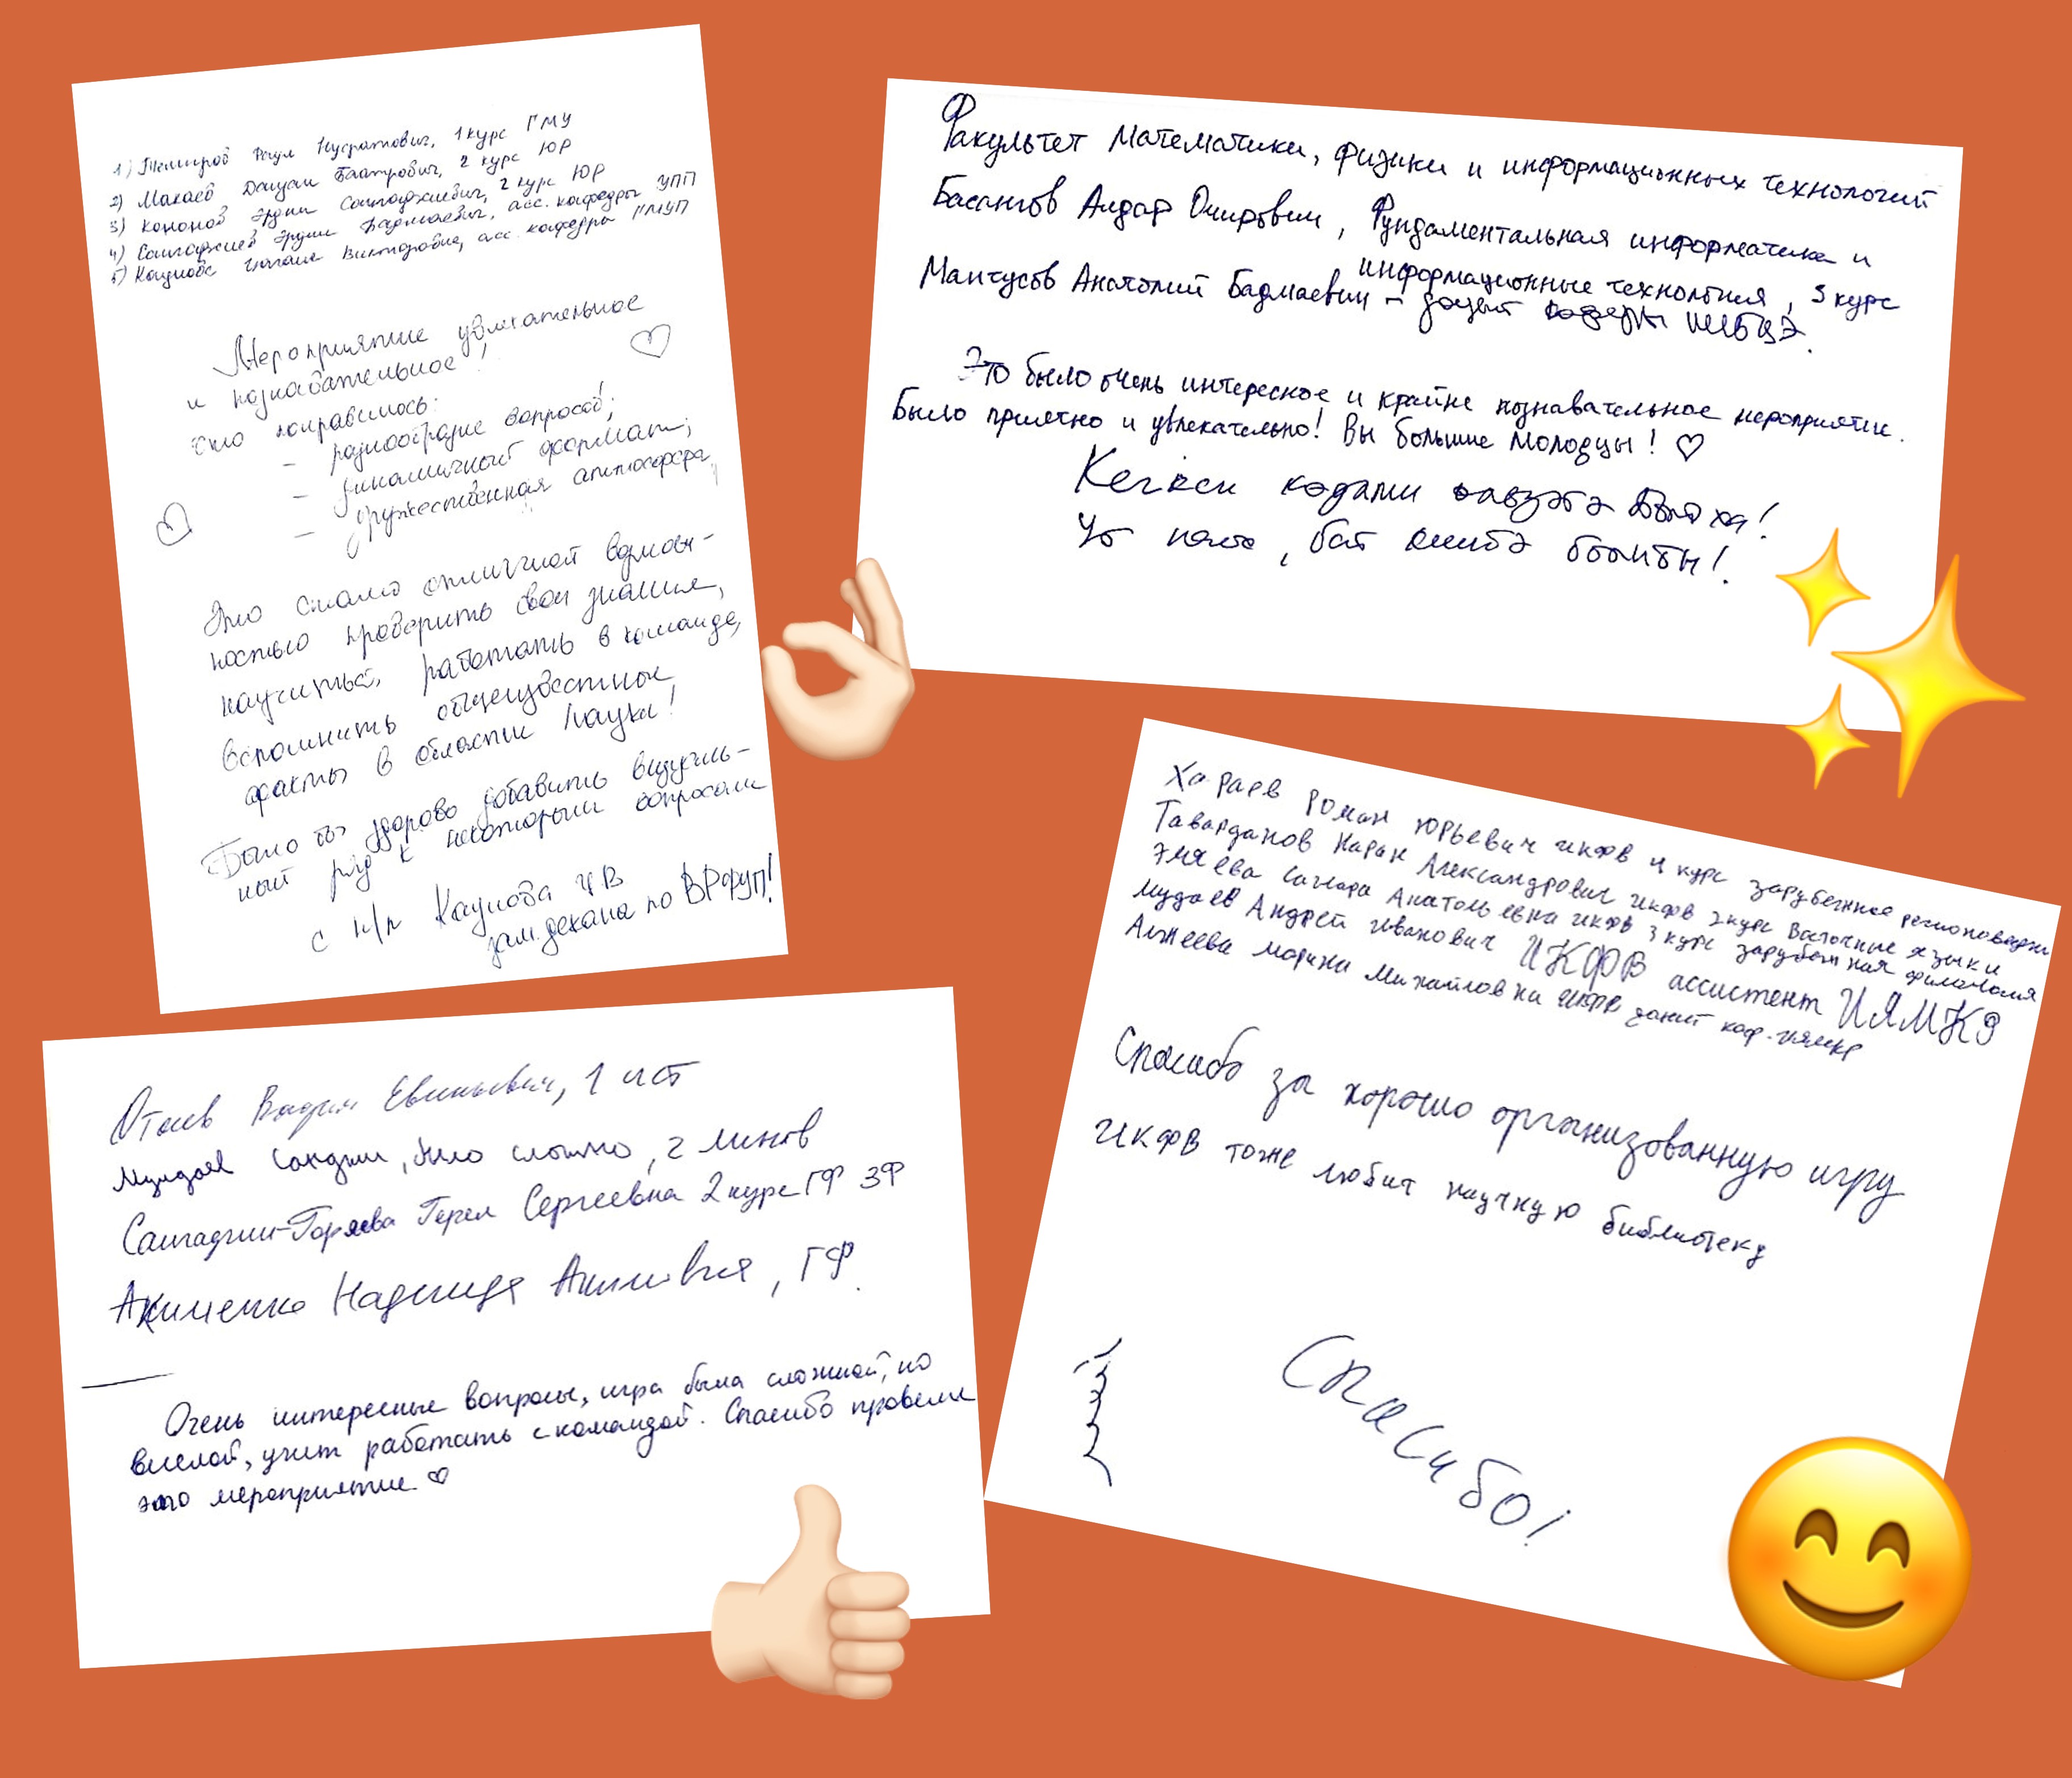 1) Темиров Расул Нусратович, 1 курс ГМУ
2) Макаев Баатрович, 2 курс ЮР
3) Кононов Эрдни Сангаджиевич, 2 курс ЮР
4) Сангаджиев Эрдни Бадмаевич, асс. кафедры УПП
5) Викторовна, асс. кафедры ГМУП
Мероприятие увлекательное
и познавательное!
что понравилось:
- разнообразие вопросов;
- динамичный формат;
- дружественная атмосфера
Это стало отличной возмож-
ностью проверить свои знания,
научиться работать в команде,
вспомнить общеизвестные
факты в области науки!
Было бы здорово добавить визуаль-
ный ряд к некоторым вопросам
с н/п Каунова ЧВ
зам. декана по ВРФУП!
Факультет Математики, физики и информационных технологий
Басангов Айдар Очирович, Фундаментальная информатика и
информационные технология, 3 курс
Манчусов Анатолий Бадмаевич - доцент кафедры
Это было очень интересное и крайне познавательное мероприятие.
Было приятно и увлекательно! Вы большие молодцы! ♡
Хараев Роман Юрьевич ИКФВ 4 курс зарубежное регионоведение
Тавардапов Наран Александрович ИКФВ 2 курс Восточные языки
Эляева Саглара Анатольевна ИКФВ 3 курс зарубежная филология
Мудаев Андрей Иванович ИКФВ ассистент ИЯМКР
Алжеева Марина Михайловна ИКФВ доцент каф. ИЯМКР
Спасибо за хорошо организованную игру
ИКФВ тоже любит научную библиотеку
Спасибо!
Вадим Евгеньевич, 1 ист
Санджи, было сложно, 2
Сангаджи-Горяева Герел Сергеевна 2 курс ГФ ЗФ
Акименко Надежда, ГФ.
Очень интересные вопросы, игра была сложной, но
веселой, учит работать с командой. Спасибо провели
это мероприятие ♡